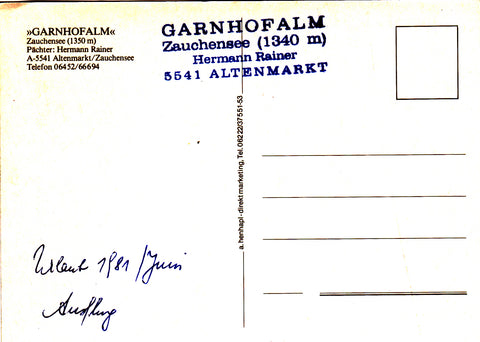 »GARNHOFALM«
Zauchensee (1350 m)
Pächter: Hermann Rainer
A-5541 Altenmarkt/Zauchensee
Telefon 06452/66694
GARNHOFALM
Zauchensee (1340 m)
Hermann Rainer
5541 ALTENMARKT
a. henhapl-direktmarketing, Tel. 06222/37551-53
Urlaub 1981 /Juni
Ausflug